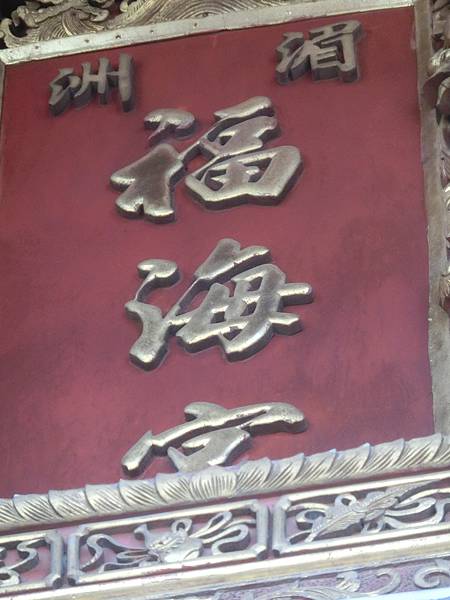 湄洲
福海宮